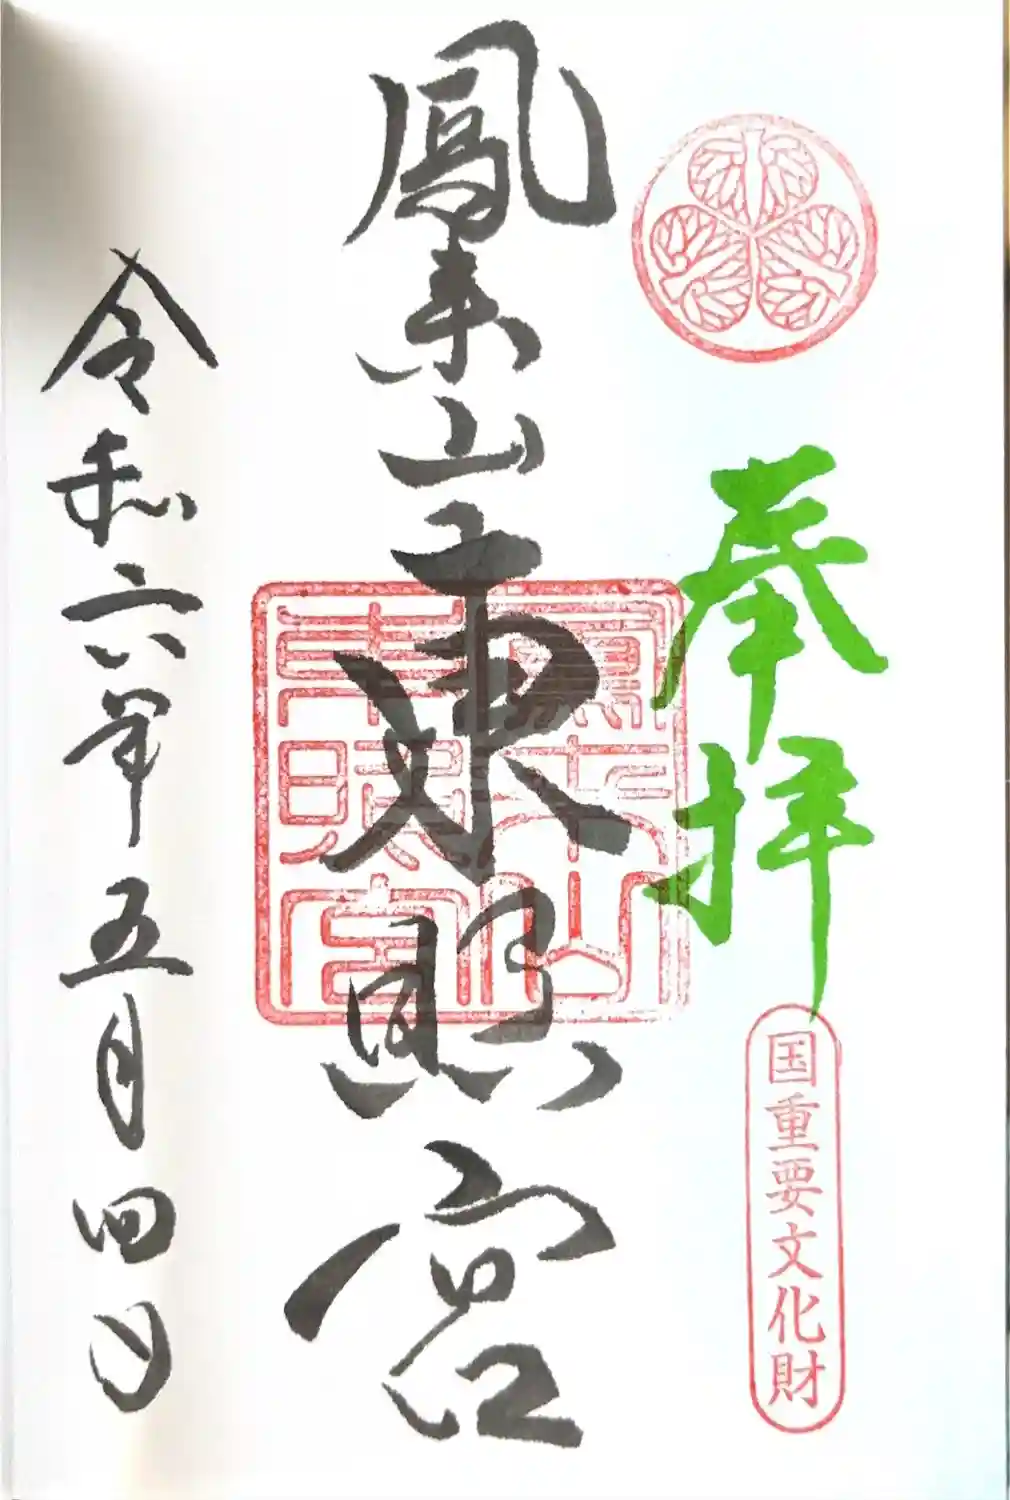 奉拝
国重要文化財
鳳来山東照宮
鳳来山東照宮
令和六年五月四日